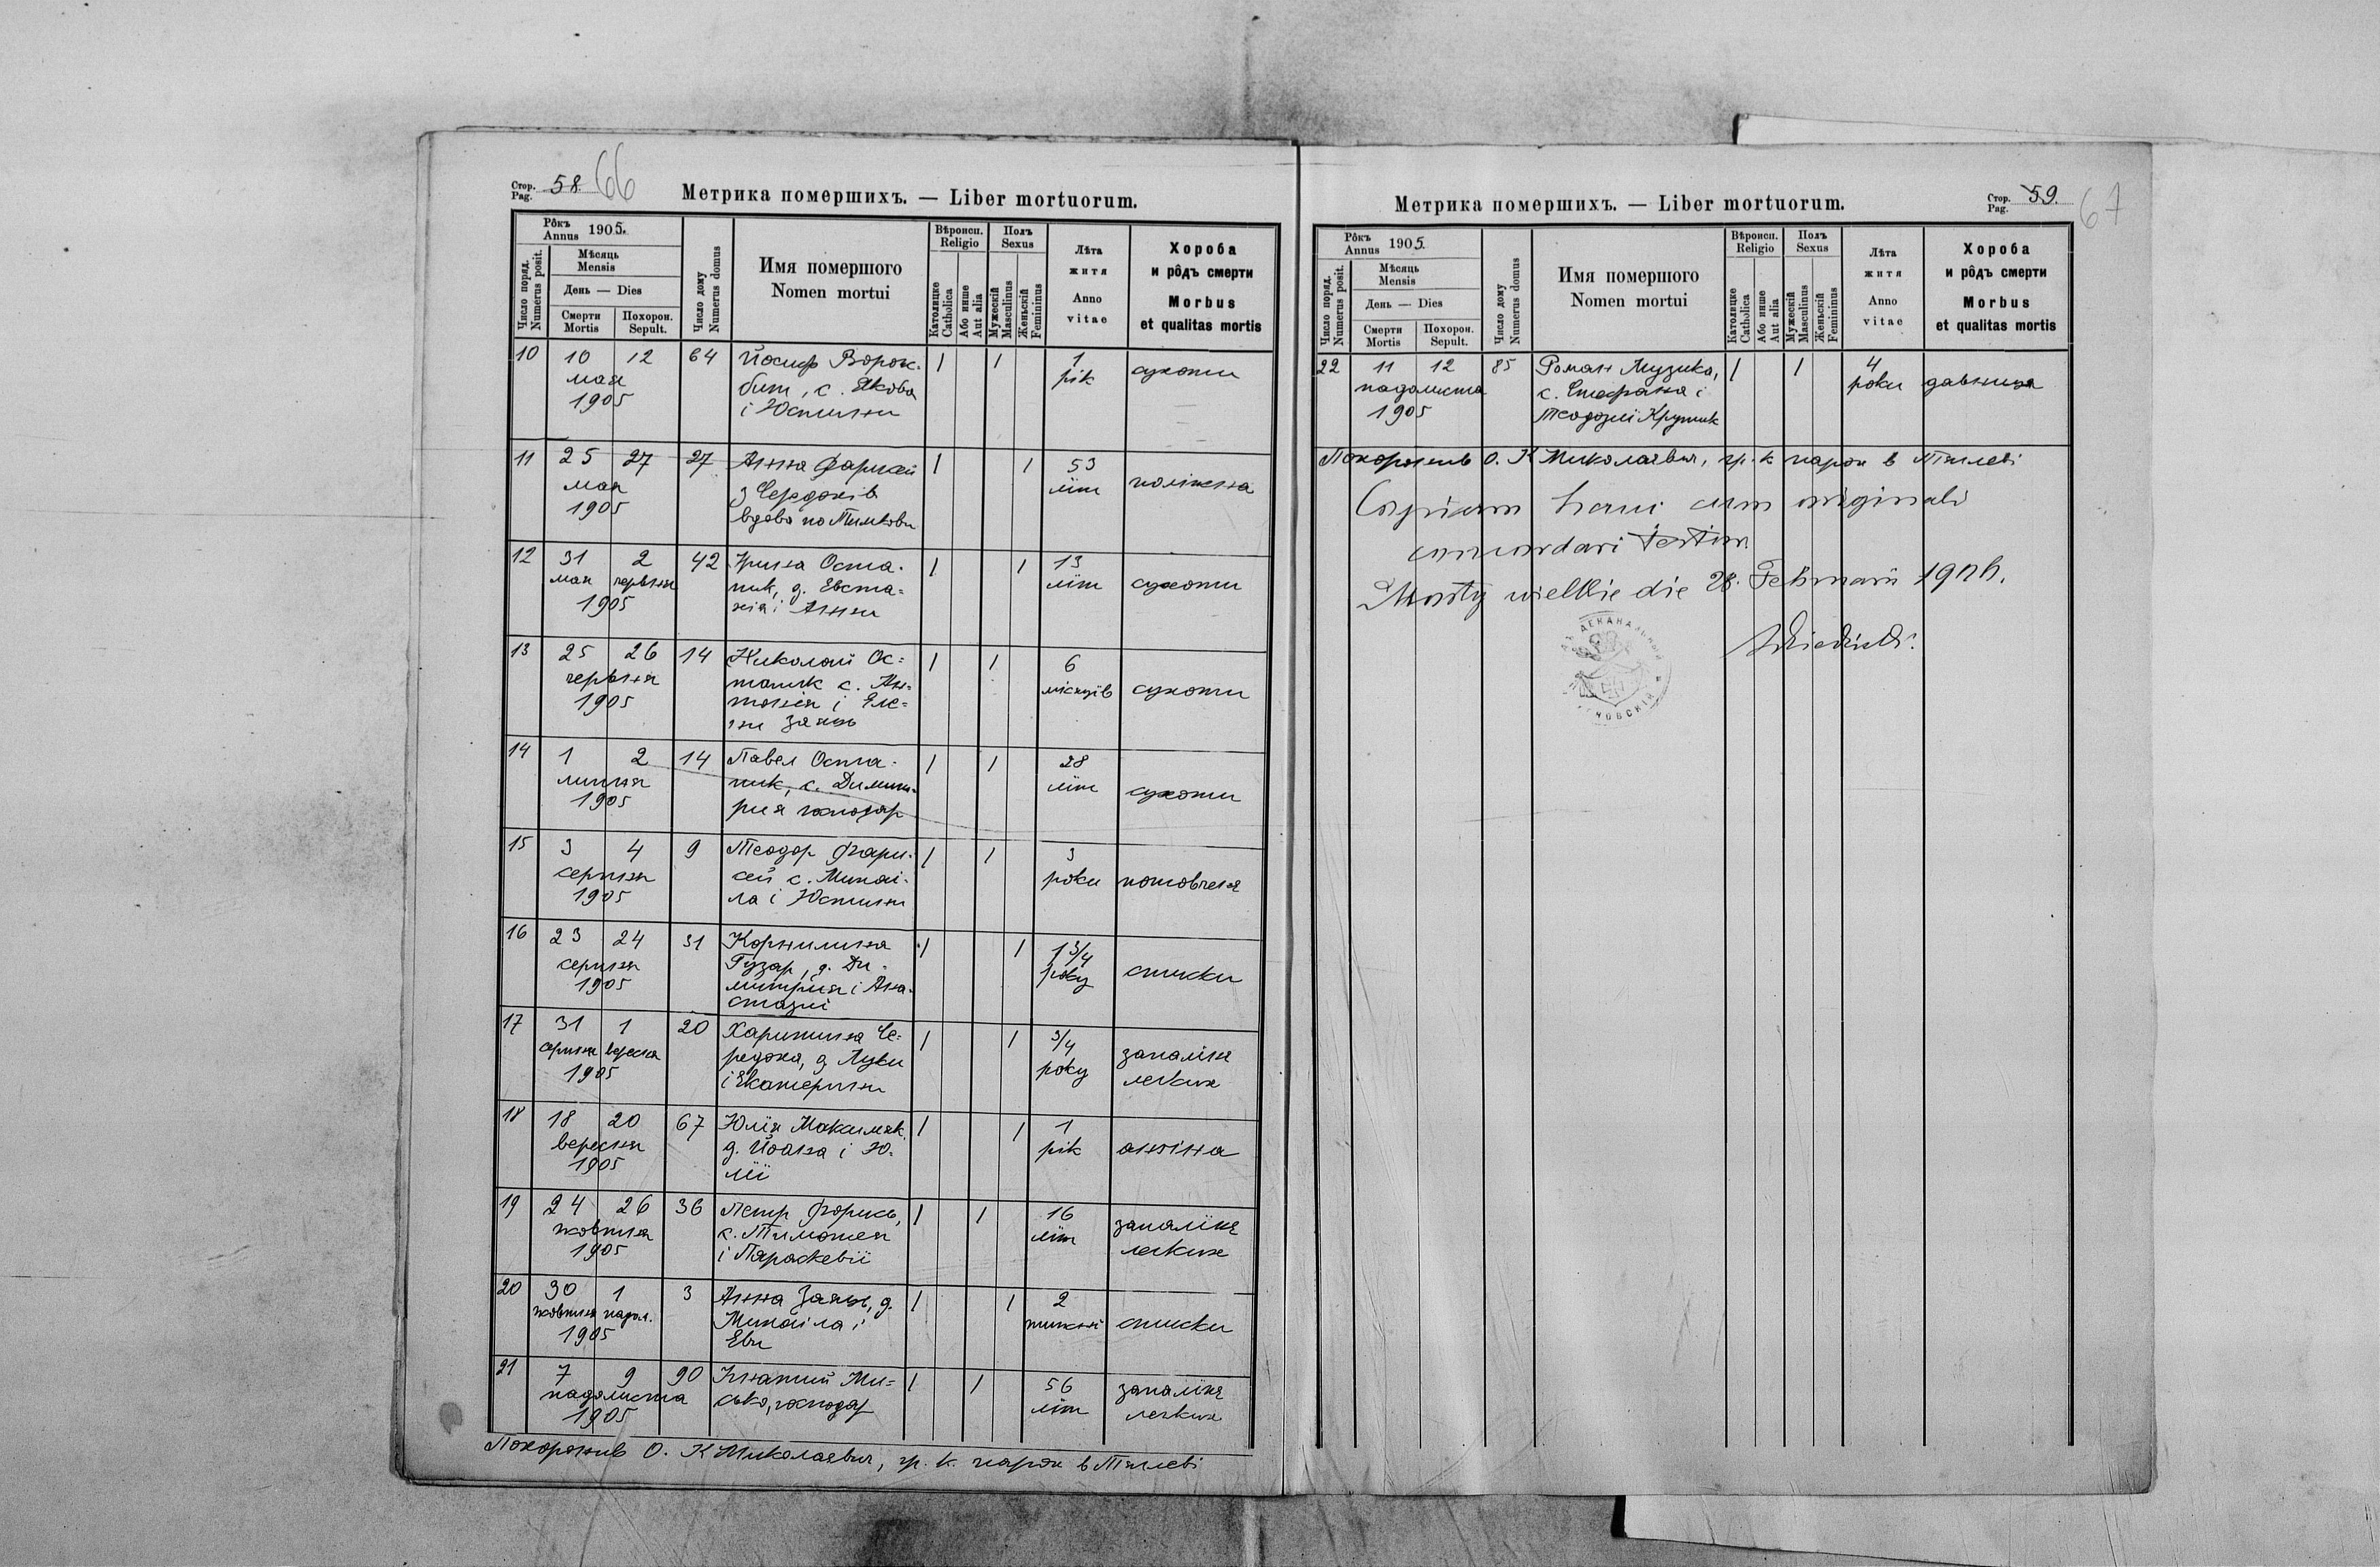 Стор. Pag. 58. 66
Метрика помершихъ. — Liber mortuorum.
Рôкъ Annus 1905.
Число поряд. Numerus posit.
Мѣсяць Mensis
День — Dies
Смерти Mortis
Похорон. Sepult.
Число дому Numerus domus
Имя помершого Nomen mortui
Вѣроисп. Religio
Католицке Catholica
Або инше Aut alia
Полъ Sexus
Мужескій Masculinus
Женьскій Femininus
Лѣта житя Anno vitae
Хороба и рôдъ смерти Morbus et qualitas mortis
10 10 12 64 Йосиф Ворож- 1 1 1 сухоти
мая бит, с. Якова рік
1905 і Юстини
11 25 27 27 Анна Фарисей 1 1 53 поліжена
мая з Череджів літ
1905 вдова по Тимкови
12 31 2 42 Ірина Оста- 1 1 13 сухоти
мая червня пик, д. Евста- літ
1905 хія і Анни
13 25 26 14 Николай Ос- 1 1 6 сухоти
червня тапик с. Ан- місяців
1905 тонія і Еле-
ни Заяць
14 1 2 14 Павел Оста- 1 1 28 сухоти
липня пик, с. Димит- літ
1905 рия господар
15 3 4 9 Теодор Фари- 1 1 3 потовченя
серпня сей с. Михаі- роки
1905 ла і Юстини
16 23 24 31 Корнилина 1 1 1 3/4 слиски
серпня Гузар, д. Ди- року
1905 митрия і Ана-
стазиї
17 31 1 20 Харитина Че- 1 1 3/4 запаліня
серпня вересня реджа, д. Луки року легких
1905 і Екатерини
18 18 20 67 Юлія Максимяк 1 1 1 ангіна
вересня д. Йоана і Ю- рік
1905 лії
19 24 26 36 Петр Форись, 1 1 16 запаліня
жовтня с. Тимотея літ легких
1905 і Параскевії
20 30 1 3 Анна Заяць, д. 1 1 2 слиски
жовтня падол. Михаіла і тижні
1905 Еви
21 7 9 90 Ігнатий Ми- 1 1 56 запаліня
падолиста сько, господар літ легких
1905
Похоронив О. К Миколаєвич, гр. к. парох в Тяглеві
Метрика помершихъ. — Liber mortuorum.
Стор. Pag. 59. 67
Рôкъ Annus 1905.
Число поряд. Numerus posit.
Мѣсяць Mensis
День — Dies
Смерти Mortis
Похорон. Sepult.
Число дому Numerus domus
Имя помершого Nomen mortui
Вѣроисп. Religio
Католицке Catholica
Або инше Aut alia
Полъ Sexus
Мужескій Masculinus
Женьскій Femininus
Лѣта житя Anno vitae
Хороба и рôдъ смерти Morbus et qualitas mortis
22 11 12 85 Роман Музика, 1 1 4 давниця
падолиста с. Стефана і роки
1905 Теодозиї Крупик
Похоронив О. К Миколаєвич, гр. к парох в Тяглеві
Copiam hanc cum originali
concordari testor.
Mosty wielkie die 28. Februarii 1906.